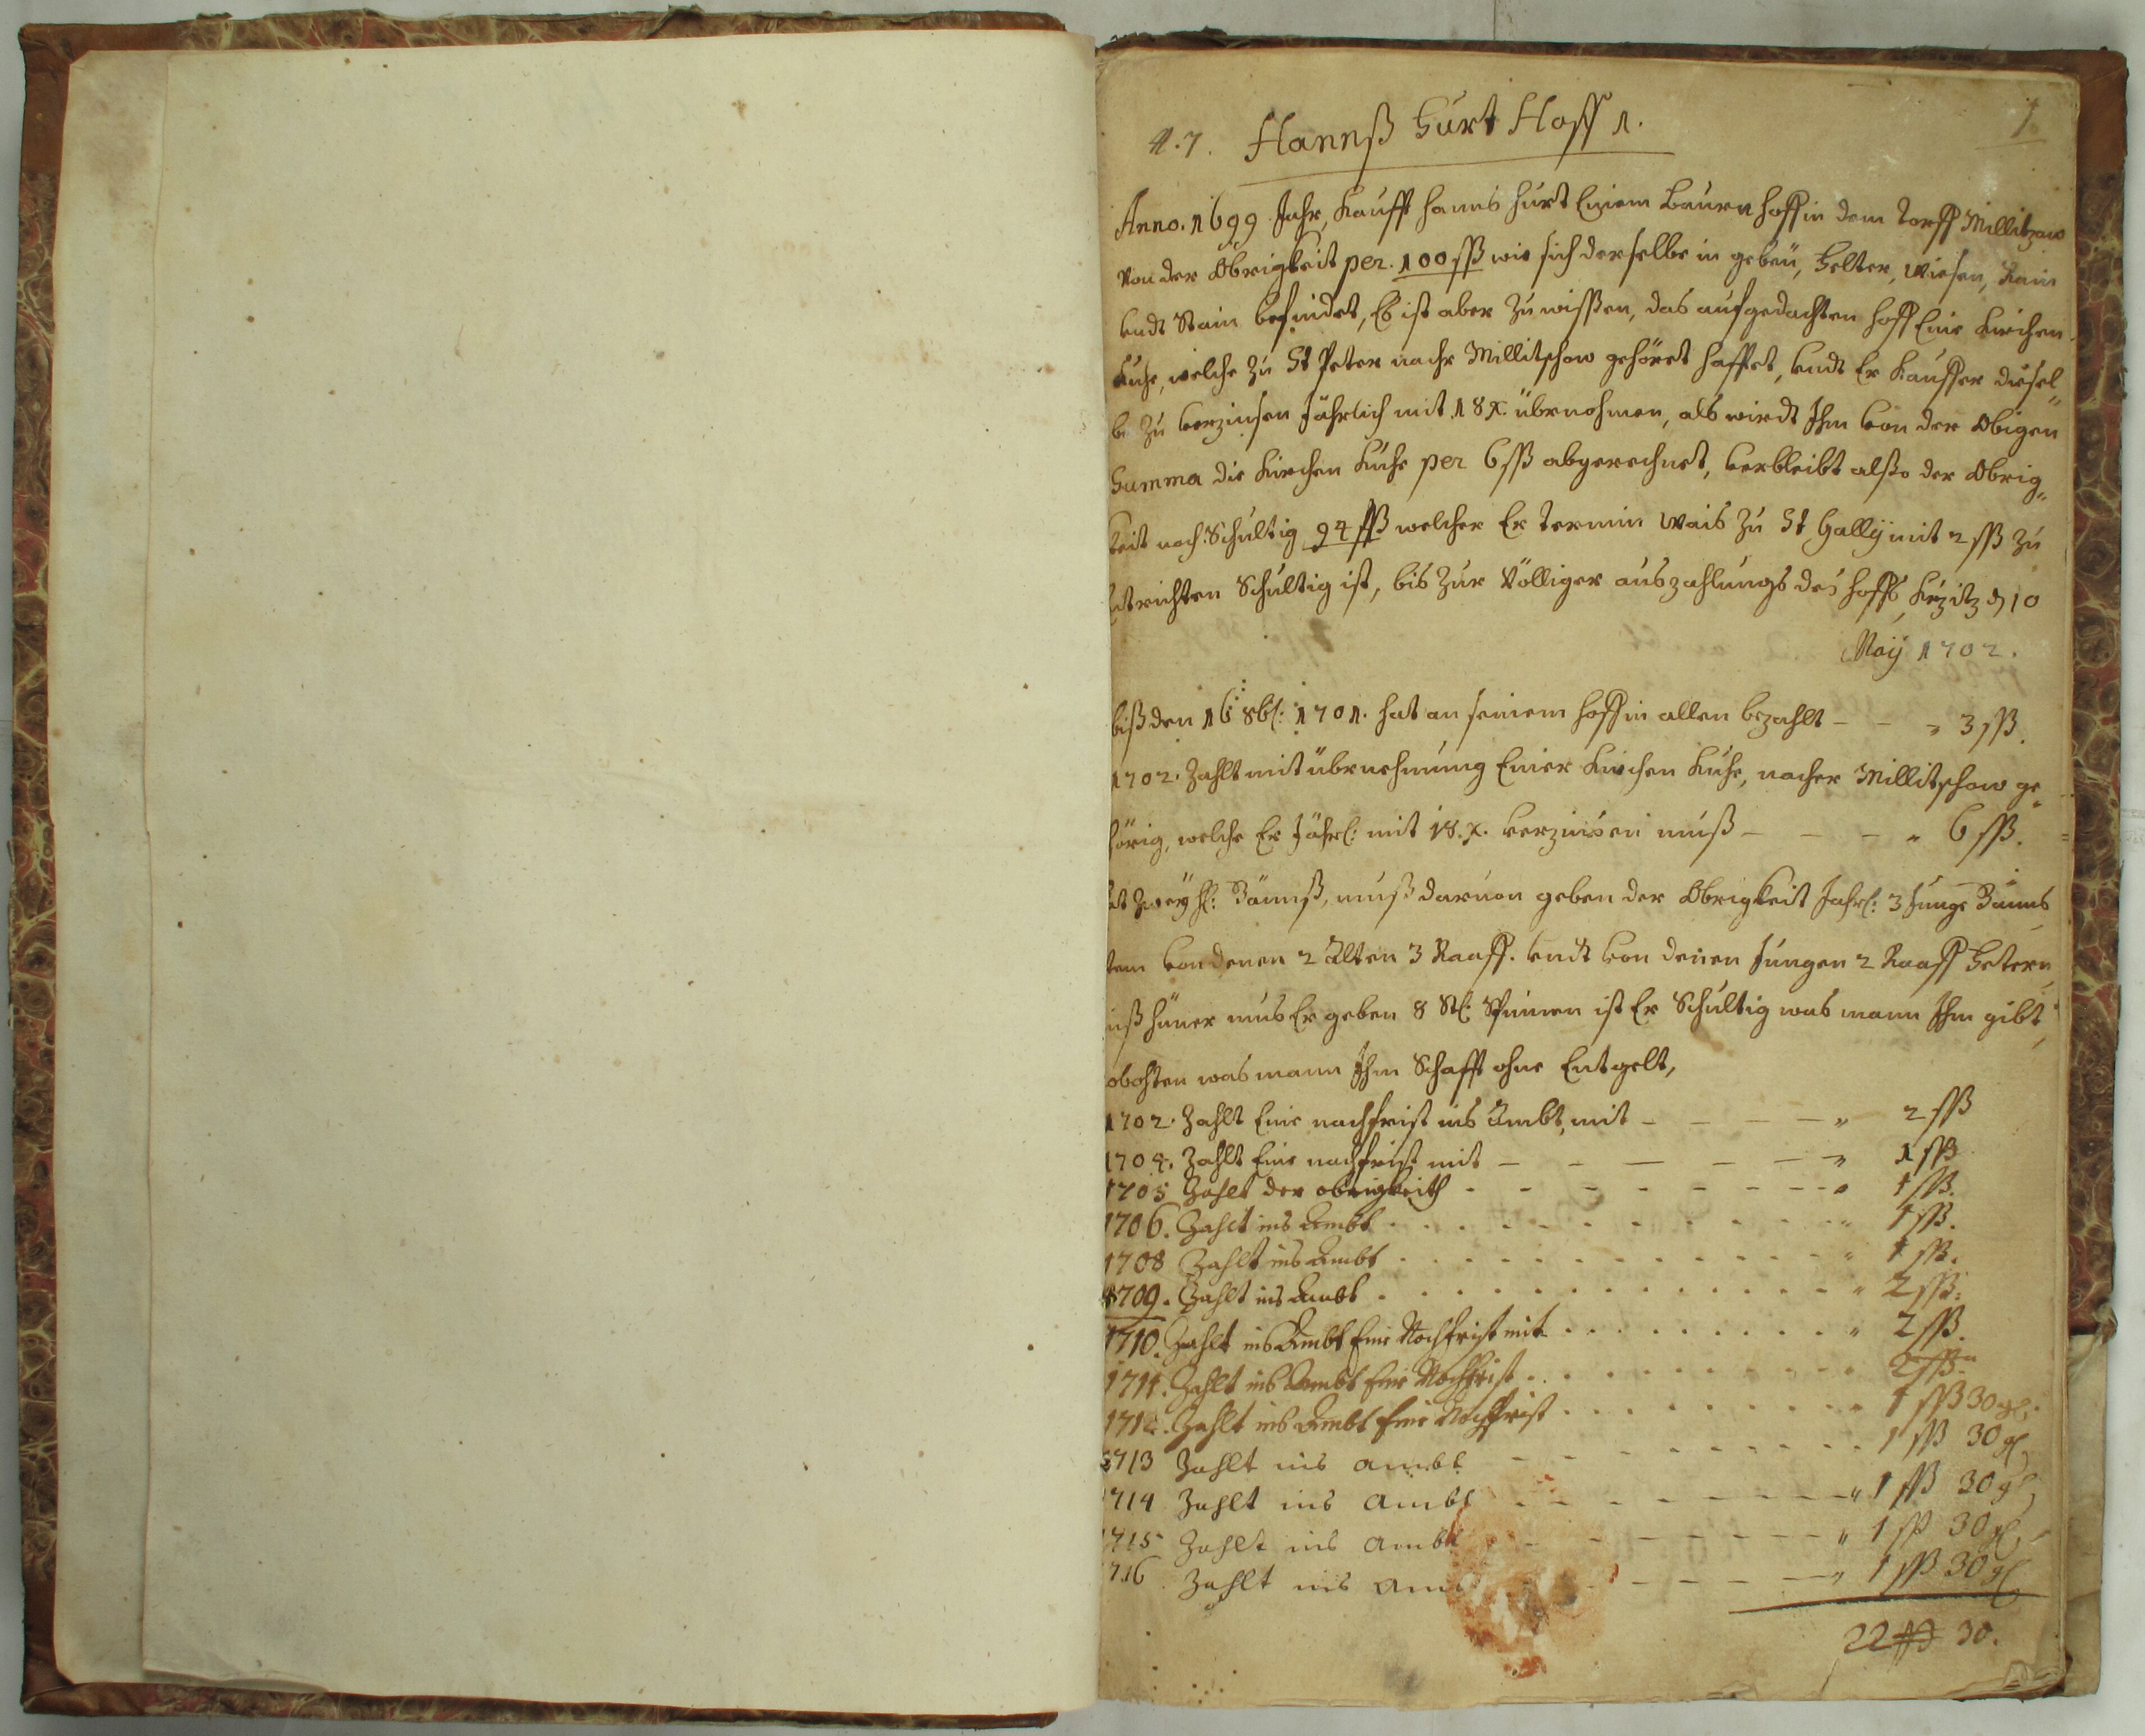 4.7. Hannß Hurt Hoff 1.
1
Anno. 1699 Jahr, Kaufft Hanns Hurt Einem Baurn hoff in dem Dorff Millitzaw
Von der Obrigkeit per. 100 ßß wie sich derselbe in gebeü, Felter, Wiesen, Rain
undt Stain befindet, Es ist aber Zu wissen, das auf gedachten hoff Eine Kirchen
Kuhe, welche Zu St Peter nache Millitschow gehöret hafftet, undt Er Kauffer diesel„
be Zu verzinsen Jährlich mit 18 x. übernohmen, als wirdt Ihm von der Obigen
Summa die Kirchen Kuhe per 6 ßß abgerechnet, verbleibt alßo der Obrig„
keit noch Schultig 94 ßß welcher Er Termin Weis Zu St Gallij mit 2 ßß Zu
Entrichten Schultig ist, bis Zur Völliger auszahlungs des hoffs, den 10
Maij 1702.
biß den 16 8b: 1701. hat an seinem hoff in allen bezahlt – – „ 3 ßß.
1702. Zahlt mit übernehmung Einer Kirchen Kuhe, nacher Millitschow ge„
hörig, welche Er Jährl: mit 18. x. verzinsen muß – – – „ 6 ßß.
Zweÿ Gännß, muß daruon geben der Obrigkeit Jahrl: 3 Junge Gänns
von denen 2 Alten 3 Raaff. undt von denen Jungen 2 Raaff Fetern
hüner mus Er geben 8 St: Spinnen ist Er Schultig was mann Ihm gibt
Robohten was mann Ihm Schafft ohne Entgelt,
1702. Zahlt Eine nachfrist ins Ambt, mit – – – – „ 2 ßß
1704. Zahlt Eine nachfrist mit – – – – – „ 1 ßß
1705 Zahlt der obrigkeith - - - - - - - - „ 1 ßß.
1706. Zahlt ins Ambt . . . . . . . . . . „ 1 ßß.
1708 Zahlt ins Ambt . . . . . . . . . . „ 1 ßß.
1709. Zahlt ins Ambt . . . . . . . . . . „ 2 ßß.
1710. Zahlt ins Ambt Eine Nachfrist mit . . . . . . . . „ 2 ßß.
1711. Zahlt ins Ambt Eine Nachfrist . . . . . . . . „ 2 ßß.
1712. Zahlt ins Ambt Eine Nachfrist . . . . . . . . „ 1 ßß 30 gl.
1713 Zahlt ins Ambt - - - - - - - - - 1 ßß 30 gl
1714 Zahlt ins Ambt - - - - - - - - „ 1 ßß 30 gl
1715 Zahlt ins Ambt - - - - - - - - „ 1 ßß 30 gl
1716. Zahlt ins Am - - - - - - - „ 1 ßß 30 gl
22 ßß 30.